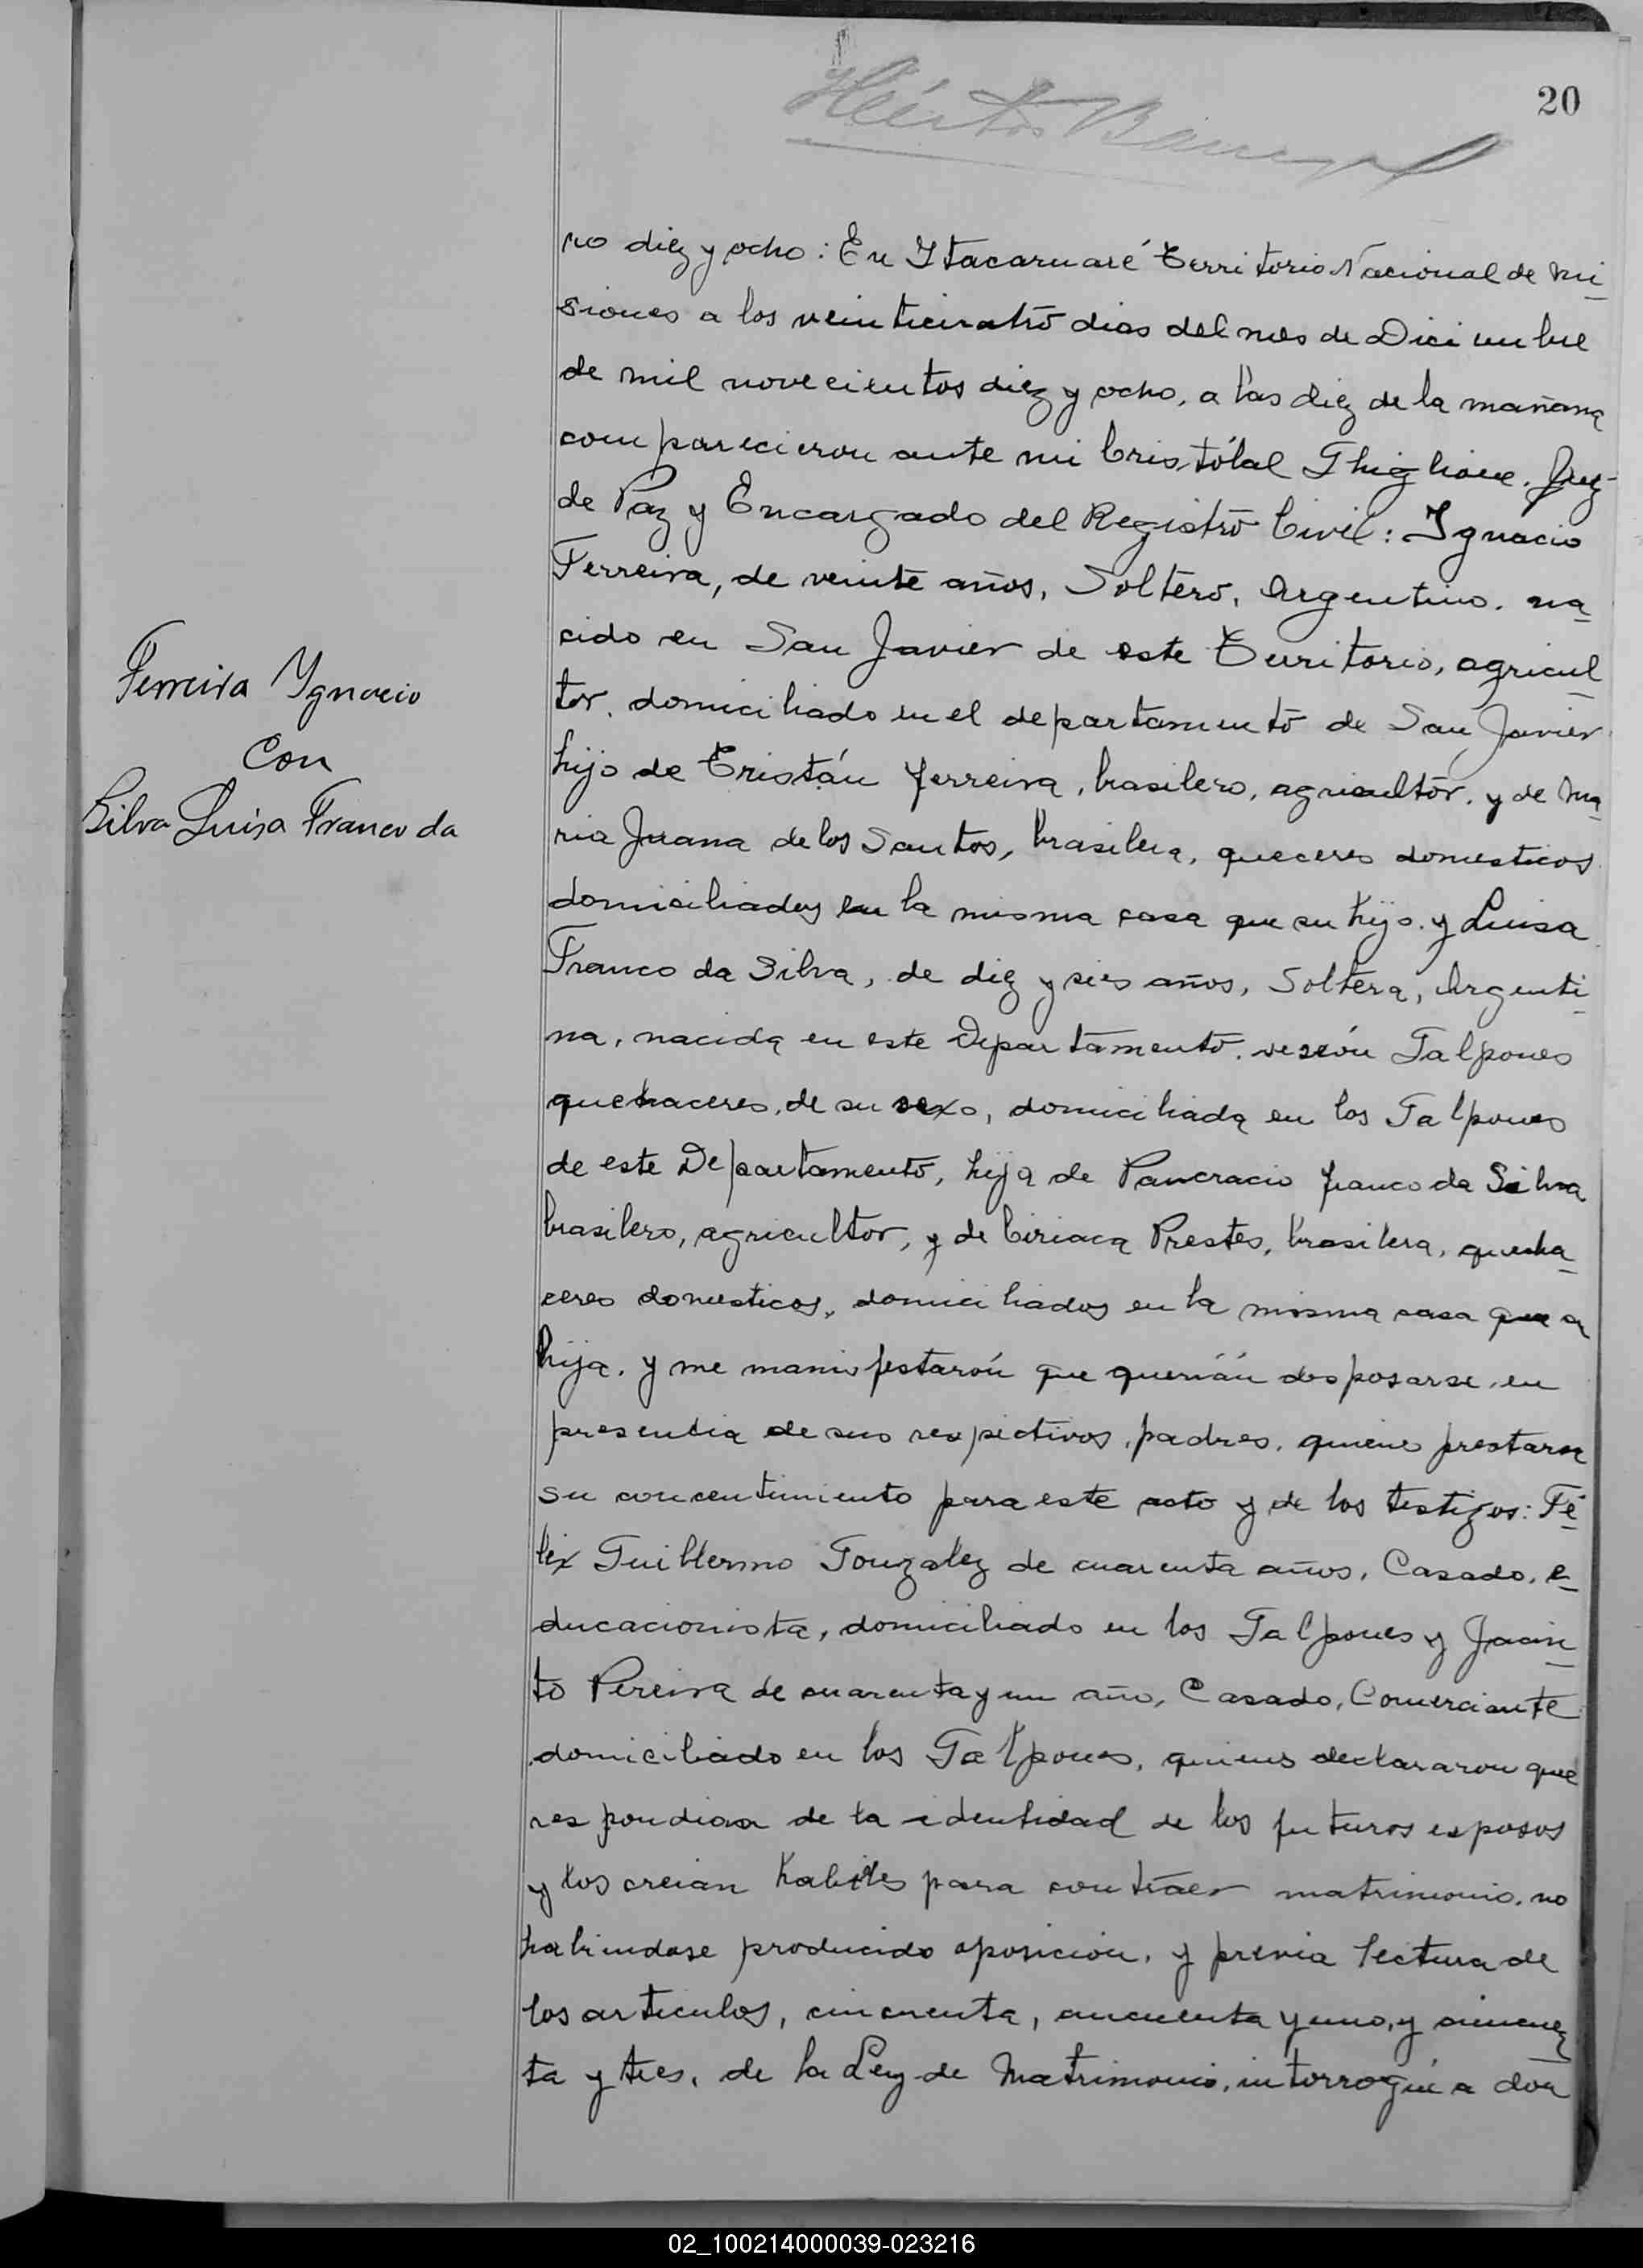 20
Héctor
no diez y ocho: En Itacaruaré Territorio Nacional de Mi-
siones a los veinticuatro dias del mes de Diciembre
de mil novecientos diez y ocho, a las diez de la mañana
comparecieron ante mi Cristóbal Ghiglione. Juez
de Paz y Encargado del Registro Civil: Ignacio
Ferreira, de veinte años, Soltero, Argentino. na-
cido en San Javier de este Territorio, agricul-
tor. domiciliado en el departamento de San Javier
hijo de Tristán ferreira, brasilero, agricultor. y de Ma-
ria Juana de los Santos, brasilera, queceres domesticos
domiciliados en la misma casa que su hijo. y Luisa
Franco da Silva, de diez y seis años, Soltera, Argenti-
na, nacida en este Departamento. Galpones
quehaceres, de su sexo, domiciliada en los Galpones
de este Departamento, hija de Pancracio franco da Silva
brasilero, agricultor, y de Ciriaca Prestes, brasilera, queha-
ceres domesticos, domiciliados en la misma casa que su
hija. y me manifestarón que querián desposarse, en
presentia de sus respectivos, padres, quienes prestaron
su concentimiento para este acto y de los testigos: Fé-
lix Guillermo Gonzalez de cuarenta años, Casado, e-
ducacionista, domiciliado en los Galpones y Jacin-
to Pereira de cuarenta y un año, Casado, Comerciante
domiciliado en los Galpones, quienes declararon que
respondian de la identidad de los futuros esposos
y los creian habiles para contraer matrimonio. no
habiendose producido oposición, y previa lectura de
los articulos, cincuenta, cincuenta y uno, y cincuen-
ta y tres, de la Ley de Matrimonio, interrogué a don
Ferreira Ygnacio
Con
Silva Luisa Franco da
02_100214000039-023216